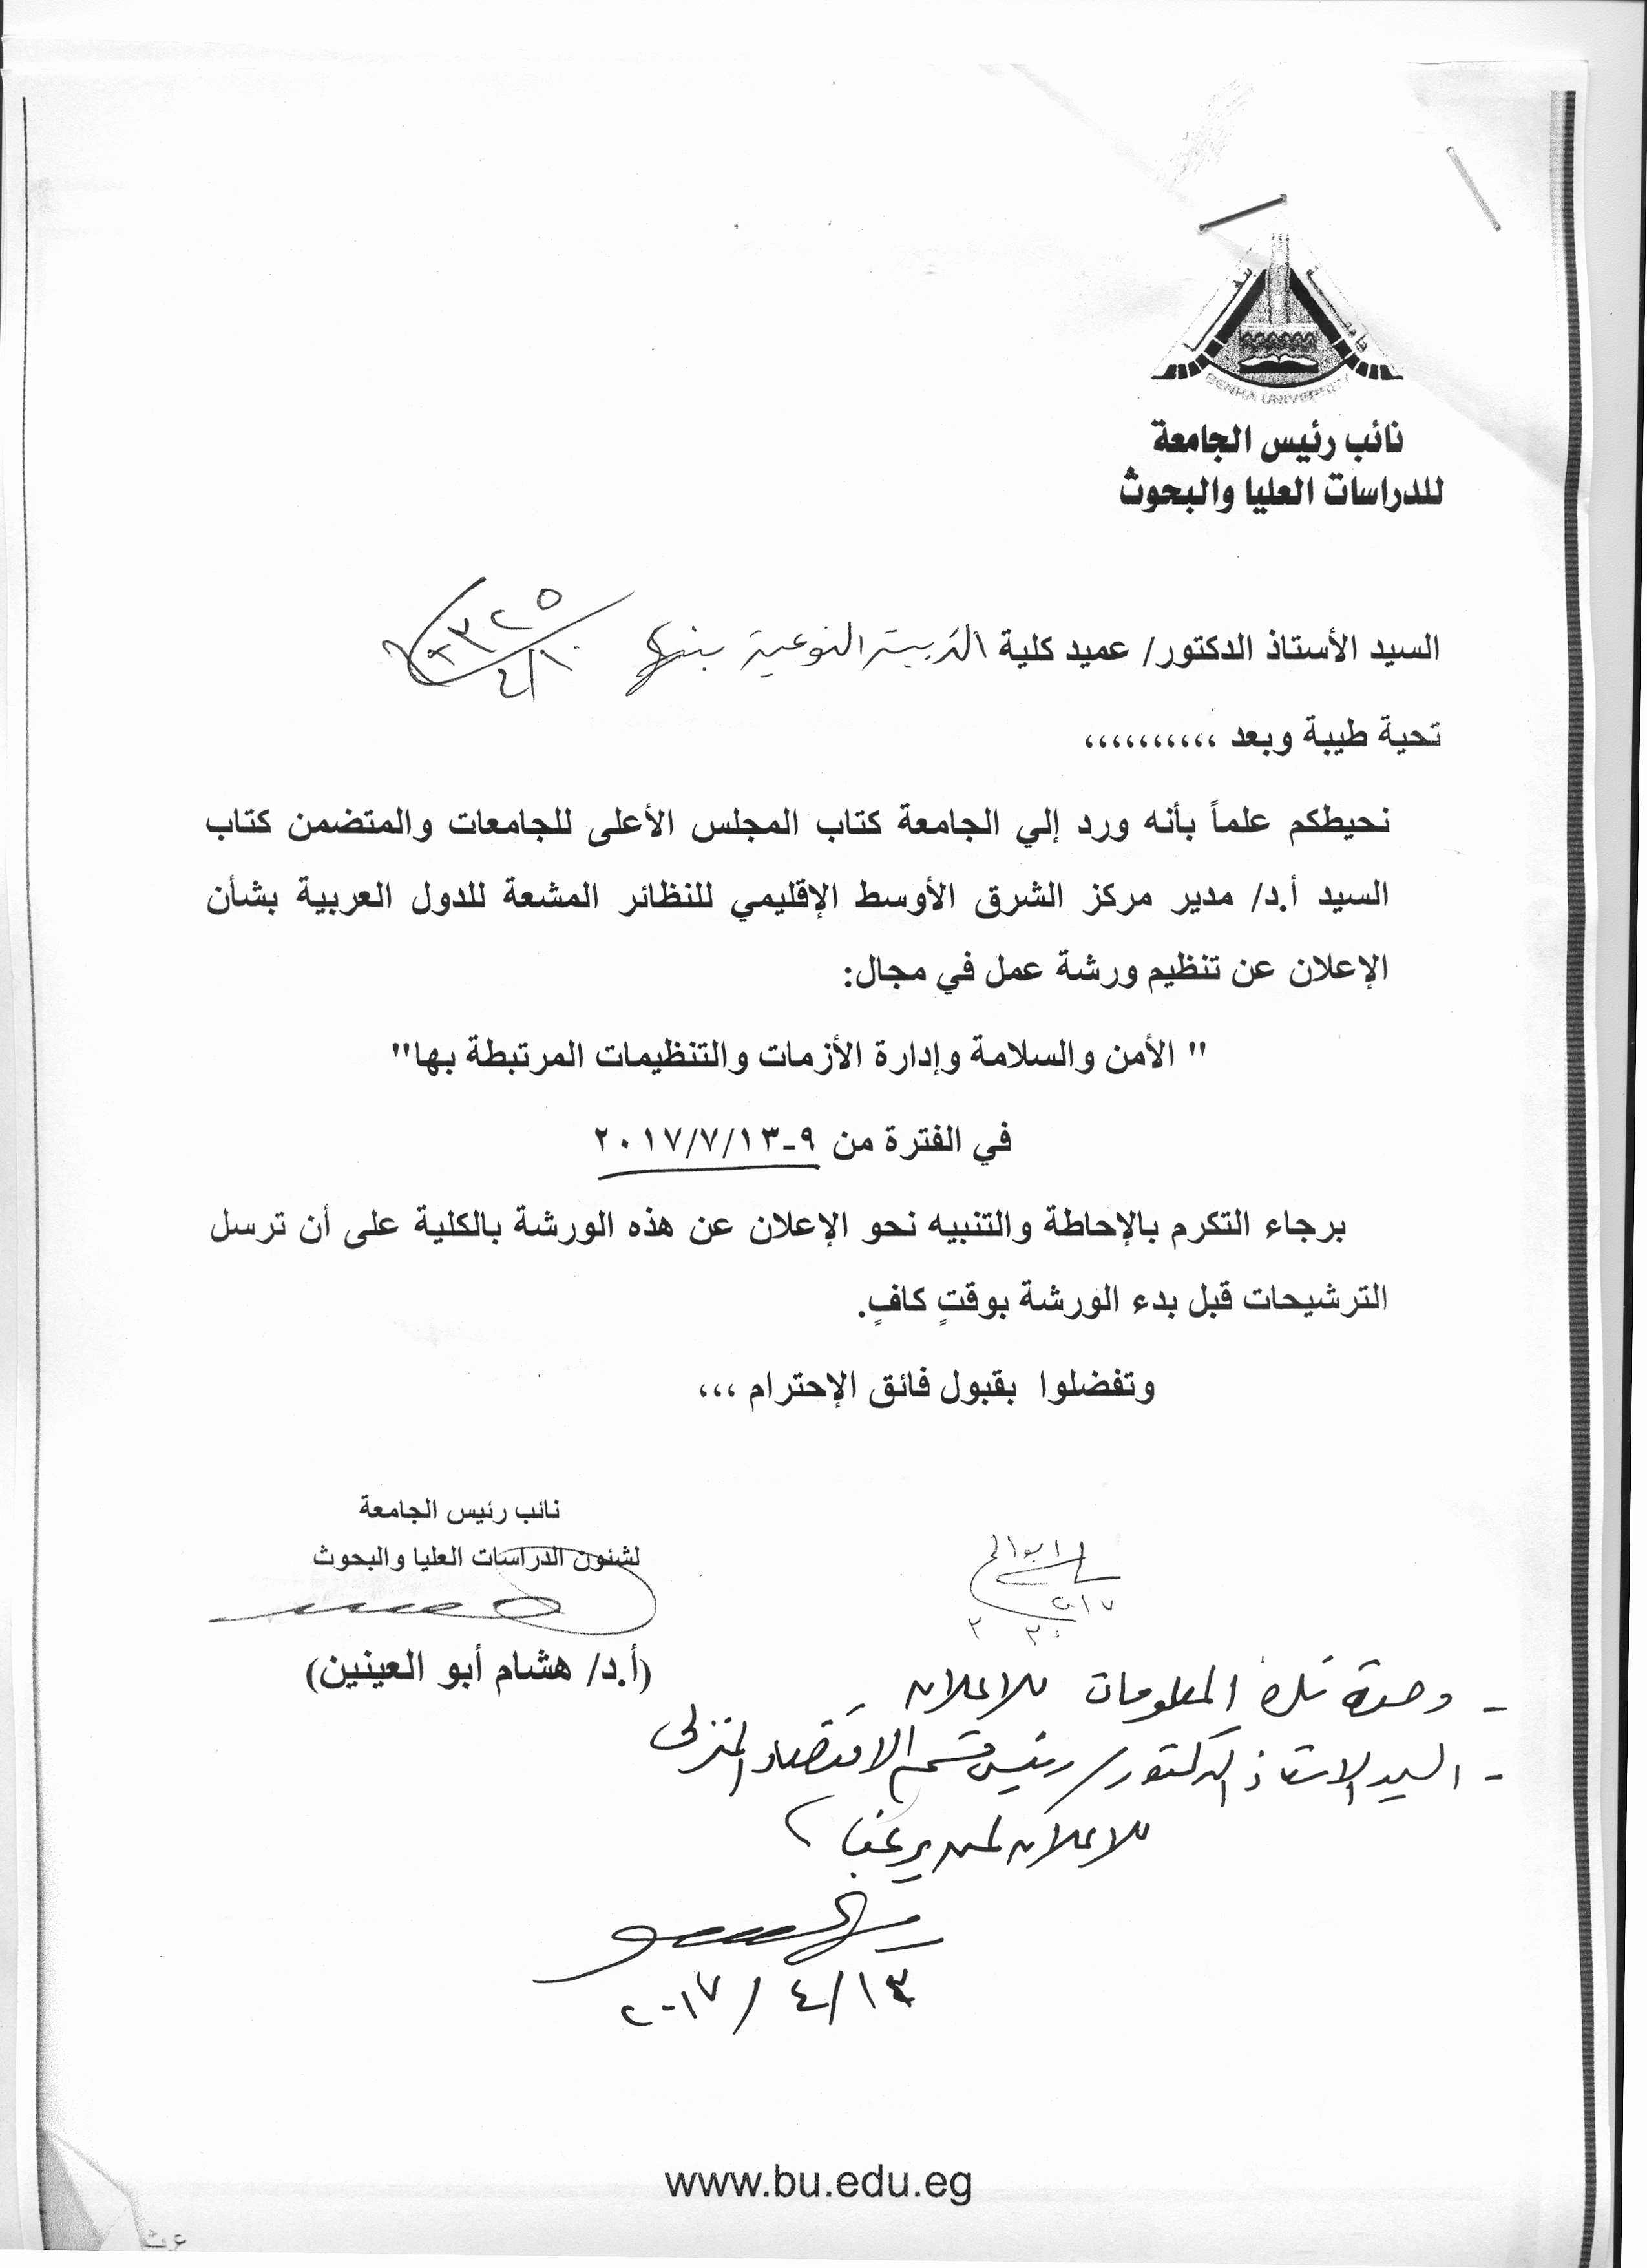 BENHA UNIVERSITY
نائب رئيس الجامعة
للدراسات العليا والبحوث
السيد الأستاذ الدكتور/ عميد كلية التربية النوعية بنها
٣٢٥
٤/١٠
تحية طيبة وبعد ،،،،،،،،،،
نحيطكم علماً بأنه ورد إلي الجامعة كتاب المجلس الأعلى للجامعات والمتضمن كتاب
السيد أ.د/ مدير مركز الشرق الأوسط الإقليمي للنظائر المشعة للدول العربية بشأن
الإعلان عن تنظيم ورشة عمل في مجال:
" الأمن والسلامة وإدارة الأزمات والتنظيمات المرتبطة بها"
في الفترة من ٩-٢٠١٧/٧/١٣
برجاء التكرم بالإحاطة والتنبيه نحو الإعلان عن هذه الورشة بالكلية على أن ترسل
الترشيحات قبل بدء الورشة بوقتٍ كافٍ.
وتفضلوا بقبول فائق الإحترام ،،،
نائب رئيس الجامعة
لشئون الدراسات العليا والبحوث
(أ.د/ هشام أبو العينين)
- وحدة المعلومات للاعلان
- السيد الاستاذ الدكتور/ رئيس قسم الاقتصاد المنزلى
للاعلان لمن يرغب
٢٠١٧/٤/١٣
www.bu.edu.eg